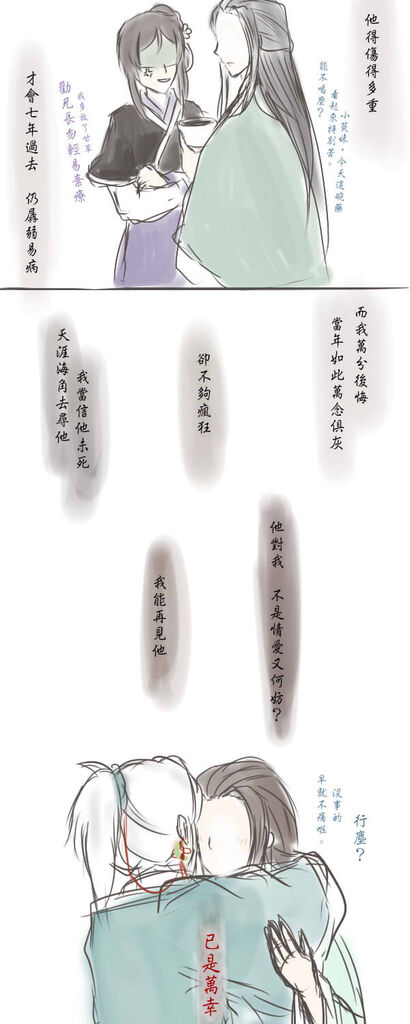 他得傷得多重
小莫妹，今天這碗藥
看起來特別苦。
能不喝麼？
我多放了甘草
勸兄長勿輕易棄療
才會七年過去 仍孱弱易病
而我萬分後悔
當年如此萬念俱灰
卻不夠瘋狂
我當信他未死
天涯海角去尋他
他對我 不是情愛又何妨？
我能再見他
行塵？
沒事的
早就不痛啦。
已是萬幸